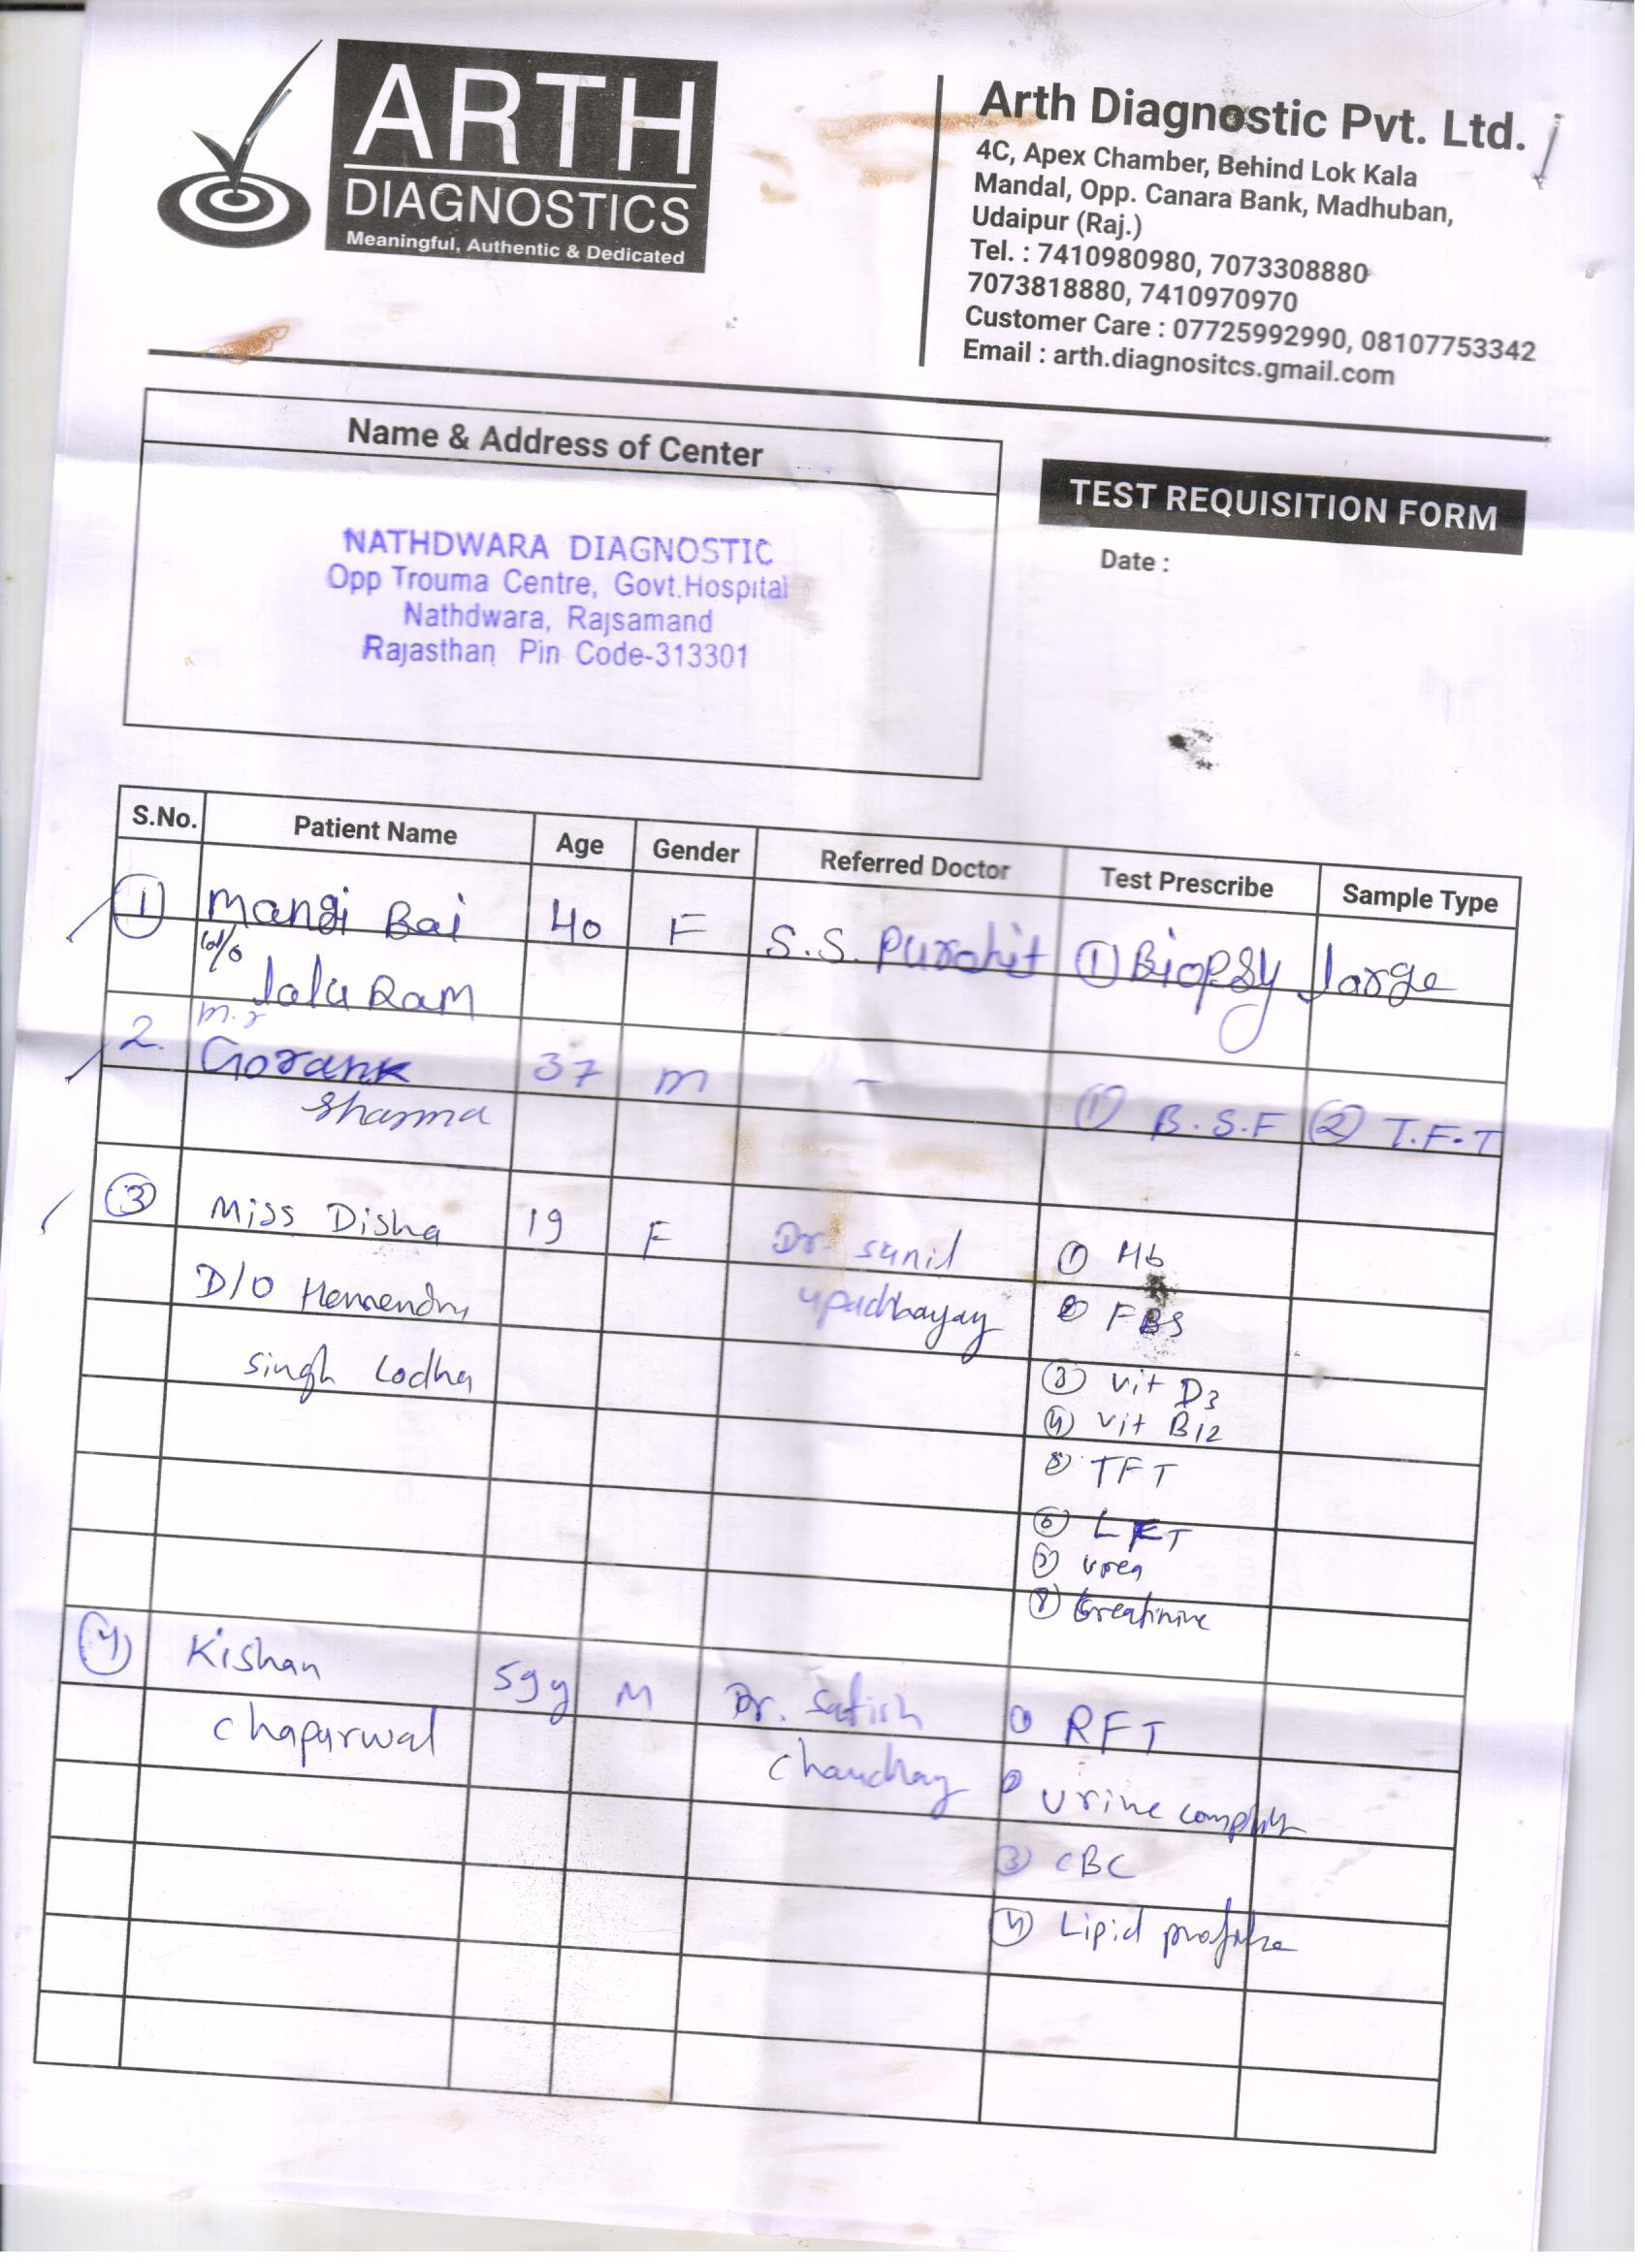 ARTH
DIAGNOSTICS
Meaningful, Authentic & Dedicated
Arth Diagnostic Pvt. Ltd.
4C, Apex Chamber, Behind Lok Kala
Mandal, Opp. Canara Bank, Madhuban,
Udaipur (Raj.)
Tel. : 7410980980, 7073308880
7073818880, 7410970970
Customer Care : 07725992990, 08107753342
Email : arth.diagnositcs.gmail.com
Name & Address of Center
NATHDWARA DIAGNOSTIC
Opp Trouma Centre, Govt.Hospital
Nathdwara, Rajsamand
Rajasthan Pin Code-313301
TEST REQUISITION FORM
Date :
S.No. Patient Name Age Gender Referred Doctor Test Prescribe Sample Type
1 Mangi Bai 40 F S.S. Purohit 1 Biopsy large
w/o Lalu Ram
m.r
2. Gorank 37 m - 1 B.S.F 2 T.F.T
Sharma
3 Miss Disha 19 F Dr. sunil 1 Hb
D/O upadhayay 2 FBS
singh Lodha 3 Vit D3
4 Vit B12
5 TFT
6 LFT
7 urea
8 Creatinine
4 Kishan 59y M Dr. Satish 1 RFT
Chaparwal 2 Urine
3 CBC
4 Lipid profile